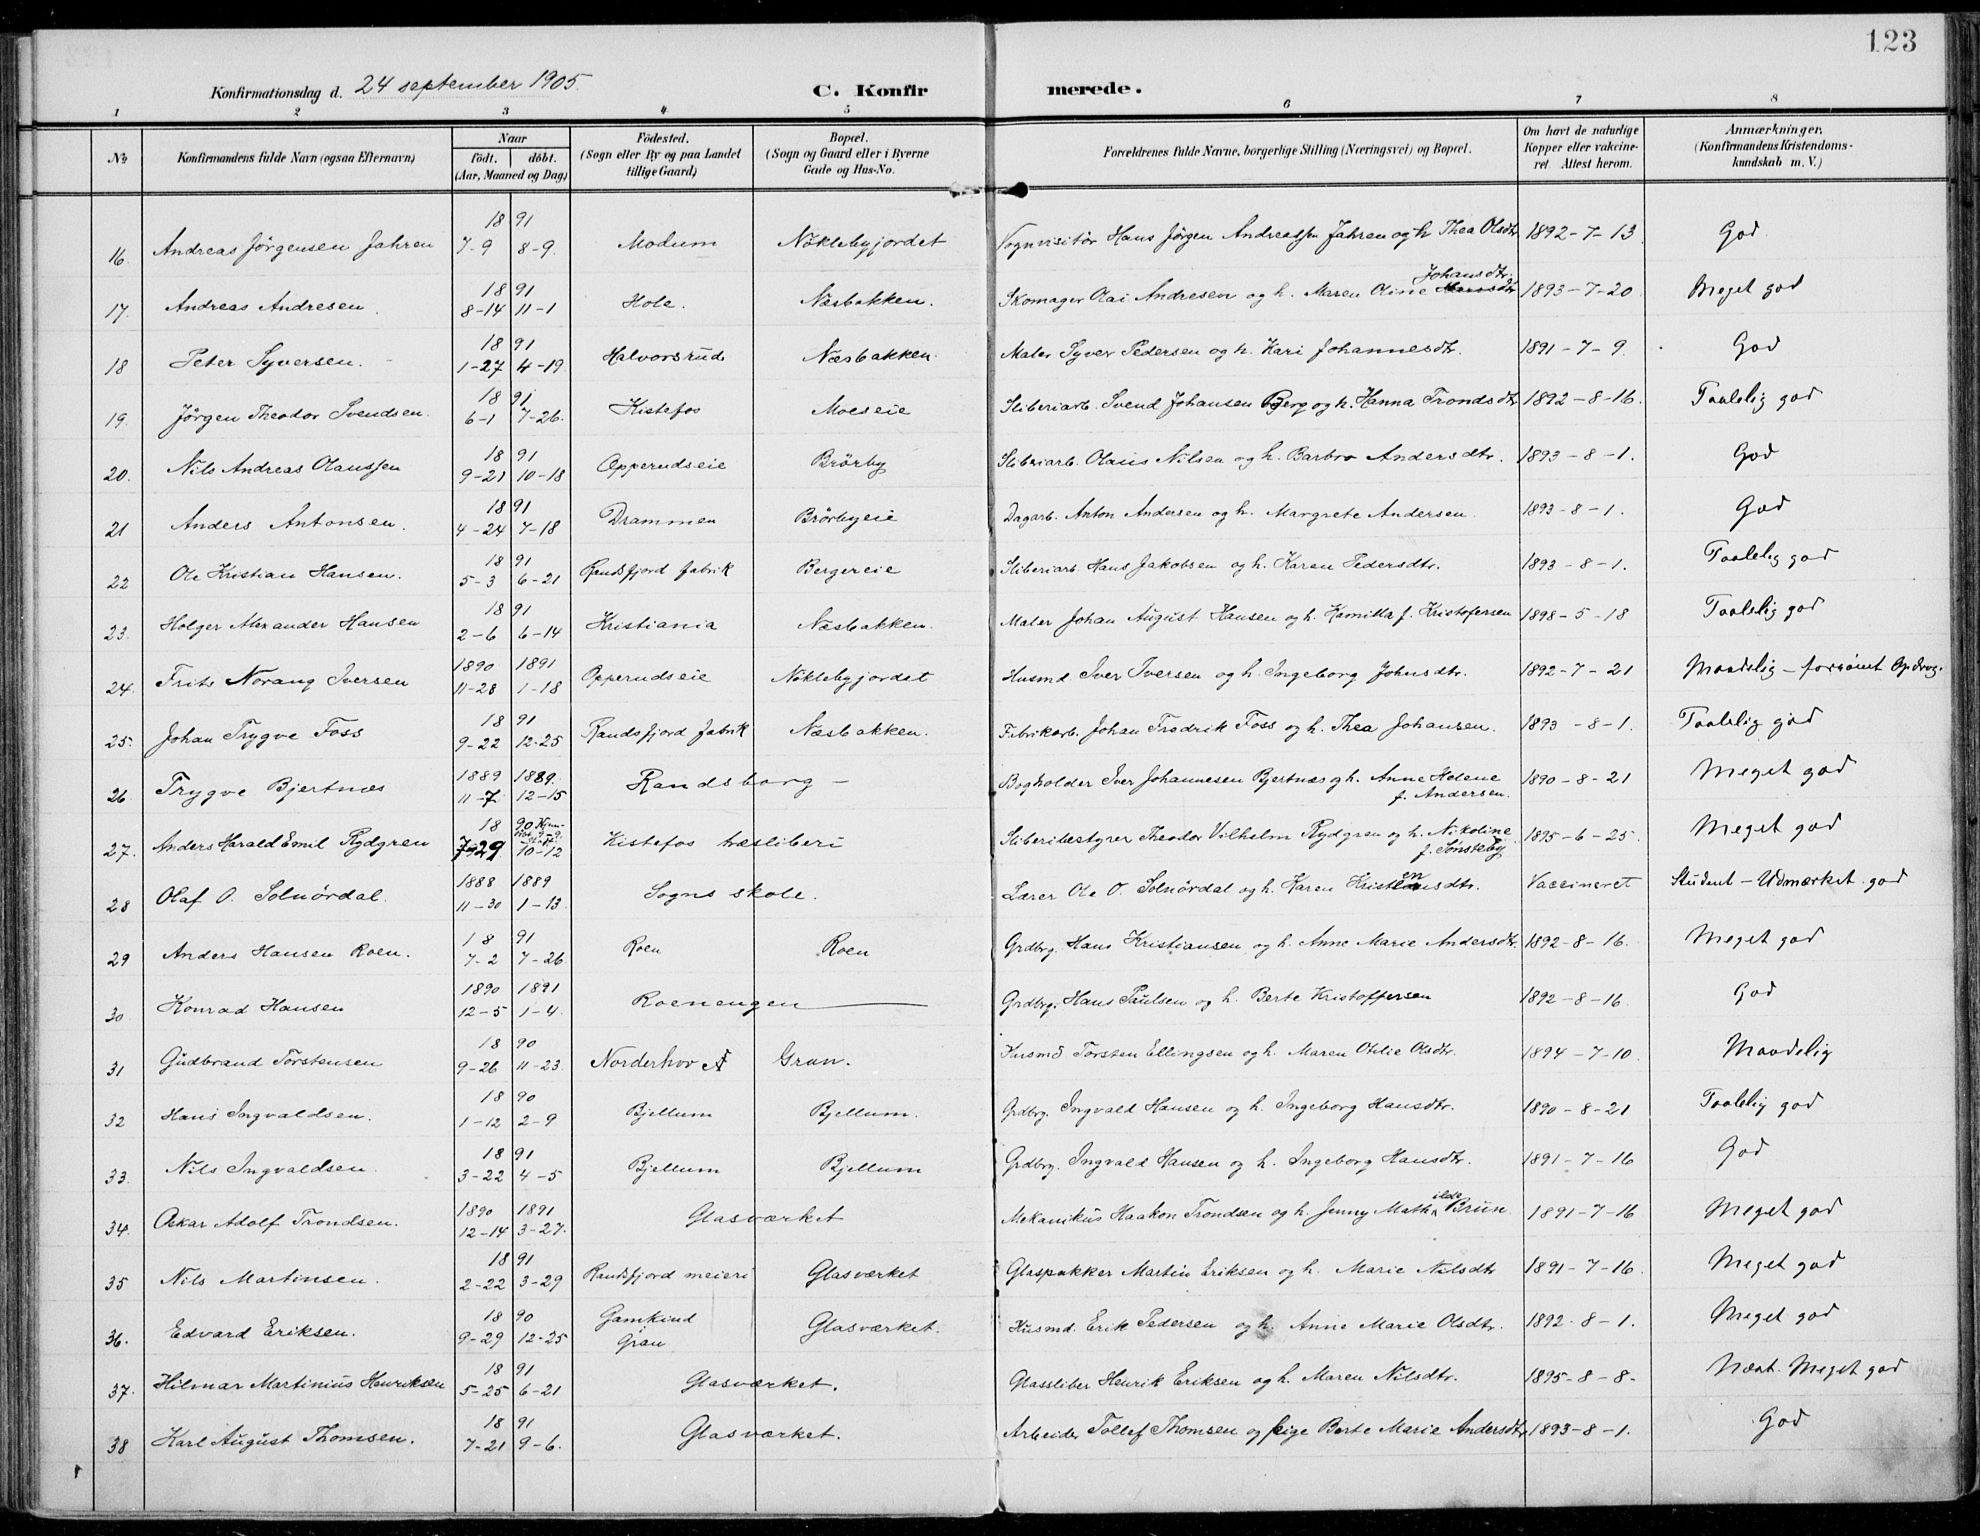 123
Konfirmationsdag d. 24 september 1905.
C. Konfirmerede.
1 2 3 4 5 6 7 8
No
Konfirmandens fulde Navn (ogsaa Efternavn)
Naar
födt. döbt.
(Aar, Maaned og Dag)
Födested.
(Sogn eller By og paa Landet
tillige Gaard)
Bopæl.
(Sogn og Gaard eller i Byerne
Gade og Hus-No.
Forældrenes fulde Navne, borgerlige Stilling (Næringsvei) og Bopæl.
Om havt de naturlige
Kopper eller vakcine-
ret. Attest herom.
Anmærkninger.
(Konfirmandens Kristendoms-
kundskab m. V.)
18 91
16. Andreas Jörgensen Jahren 7-9 8-9. Modum Nöklebyjordet Vognvisitör Hans Jörgen Andreassen Jahren og h. Thea Olsdtr. 1892-7-13. God
18 91 Johansdtr.
17. Andreas Andresen. 8-14 11-1 Hole. Næsbakken. Skomager Olai Andresen og h. Maren Oline 1893-7-20 Meget god
18 91
18 Peter Syversen. 1-27 4-19. Halvorsrud Næsbakken. Maler Syver Pedersen og h. Kari Johannesdtr. 1891-7-9. God
18 91
19. Jörgen Theodor Svendsen. 6-1 7-26. Kistefos Moeseie Sliberiarb. Svend Johansen Berg og h. Hanna Trondsdtr 1892-8-16. Taalelig god
18 91
20. Nils Andreas Olaussen 9-21 10-18 Opperudseie Brörby Sliberiarb. Olaus Nilsen og h. Barbro Andersdtr. 1893-8-1. God
18 91
21 Anders Antonsen. 4-24 7-18 Drammen Brörbyeie Dagarb. Anton Andersen og h. Margrete Andersen 1893-8-1. God
18 91
22 Ole Kristian Hansen. 5-3 6-21 Randsfjord fabrik Bergereie Sliberiarb. Hans Jakobsen og h. Karen Pedersdtr. 1893-8-1. Taalelig god
18 91
23. Holger Alexander Hansen 2-6 6-14 Kristiania Næsbakken. Maler Johan August Hansen og h. Kamilla f. Kristofersen 1898-5-18 Taalelig god
1890 1891
24. Frits Norang Iversen 11-28 1-18 Opperudseie Nöklebyjordet Husmd Iver Iversen og h. Ingeborg Johnsdtr. 1892-7-21 Maadelig - forsömt Opdrag.
18 91
25. Johan Trygve Foss 9-22 12-25 Randsfjord fabrik Næsbakken. Fabrikarb. Johan Fredrik Foss og h. Thea Johansen. 1893-8-1. Taalelig god
1889 1889.
26. Trygve Bjertnæs 11-7 12-15 Randsborg - Bogholder Iver Johannesen Bjertnæs og h. Anne Helene 1890-8-21 Meget god
f. Andersen.
18 90
27. Anders Harald Emil Rydgren 7-29 10-12 Kistefos træsliberi Sliberibestyrer Theodor Vilhelm Rydgren og h. Nikoline 1895-6-25. Meget god
f. Sönsteby
1888 1889
28 Olaf O. Solnördal. 11-30 1-13. Sogns skole. Lærer Ole O. Solnördal og h. Karen Kristensdtr. Vaccineret Student - Udmærket god
18 91
29 Anders Hansen Roen. 7-2 7-26 Roen Roen Grdbrg. Hans Kristiansen og h. Anne Marie Andersdtr. 1892-8-16. Meget god
1890 1891
30 Konrad Hansen 12-5 1-4. Roenengen Grdbrg. Hans Paulsen og h. Berte Kristoffersen 1892-8-16. God
18 90
31 Gudbrand Torstensen 9-26 11-23. Norderhov Gran. Husmd Torsten Ellingsen og h. Maren Otilie Olsdtr. 1894-7-10. Maadelig
18 90
32 Hans Ingvaldsen. 1-12 2-9 Bjellum Bjellum. Grdbrg. Ingvald Hansen og h. Ingeborg Hansdtr. 1890-8-21 Taalelig god
18 91
33. Nils Ingvaldsen. 3-22 4-5 Bjellum Bjellum Grdbrg. Ingvald Hansen og h. Ingeborg Hansdtr. 1891-7-16 God
1890 1891
34. Oskar Adolf Trondsen. 12-14 3-27. Glasværket Mekanikus Haakon Trondsen og h. Jenny Mathilde Bruun. 1891-7-16 Meget god
18 91
35 Nils Martinsen. 2-22 3-29 Randsfjord meieri Glasværket Glaspakker Martin Eriksen og h. Marie Nilsdtr 1891-7-16. Meget god
18 90 Gamkind
36. Edvard Eriksen. 9-29 12-25 Gran Glasværket. Husmd. Erik Pedersen og h. Anne Marie Olsdtr. 1892-8-1. Meget god
18 91
37. Hilmar Martinius Henriksen 5-25 6-21 Glasværket. Glassliber Henrik Eriksen og h. Maren Nilsdtr. 1895-8-8. Næst. Meget god
18 91
38 Karl August Thomsen. 7-21 9-6. Glasværket. Arbeider Tollef Thomsen og pige Berte Marie Andersdtr 1893-8-1. God